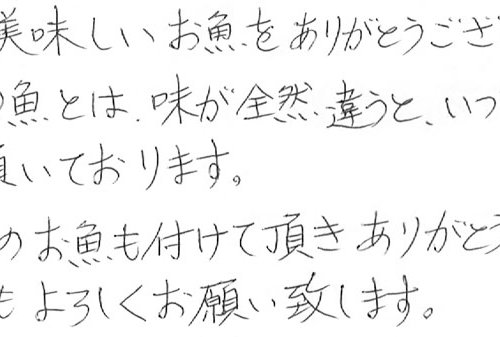 美味しいお魚をありがとうござ
魚とは、味が全然違うと、いつ
頂いております。
のお魚も付けて頂きありがとう
もよろしくお願い致します。